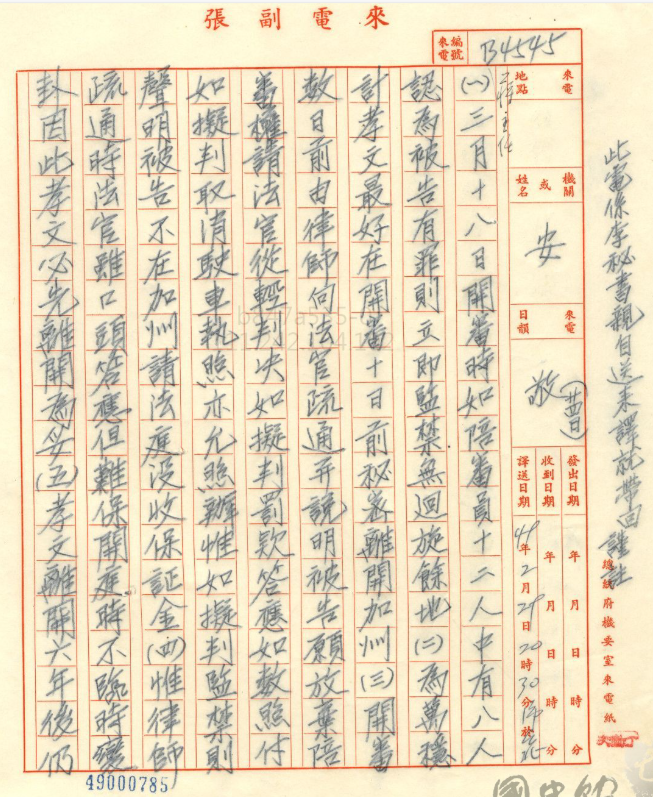 來電副張
來電編號
B4545
來電地點
機關或姓名
安
來電日韻
敬(廿四日)
發出日期 年 月 日 時 分
收到日期 年 月 日 時 分
譯送日期 49年2月29日20時30分
此電係李秘書親自送來譯就帶回 謹註
總統府機要室來電紙
(一)三月十八日開審時如陪審員十二人中有八人
認為被告有罪則立即監禁無迴旋餘地(二)為萬穩
計孝文最好在開審十日前秘密離開加州(三)開審
數日前由律師向法官疏通并說明被告願放棄陪
審權請法官從輕判決如擬判罰款答應如數照付
如擬判取消駛車執照亦允照辦惟如擬判監禁則
聲明被告不在加州請法庭沒收保証金(四)惟律師
疏通時法官雖口頭答應但難保開庭時不臨時變
卦因此孝文必先離開為妥(五)孝文離開六年後仍
49000785